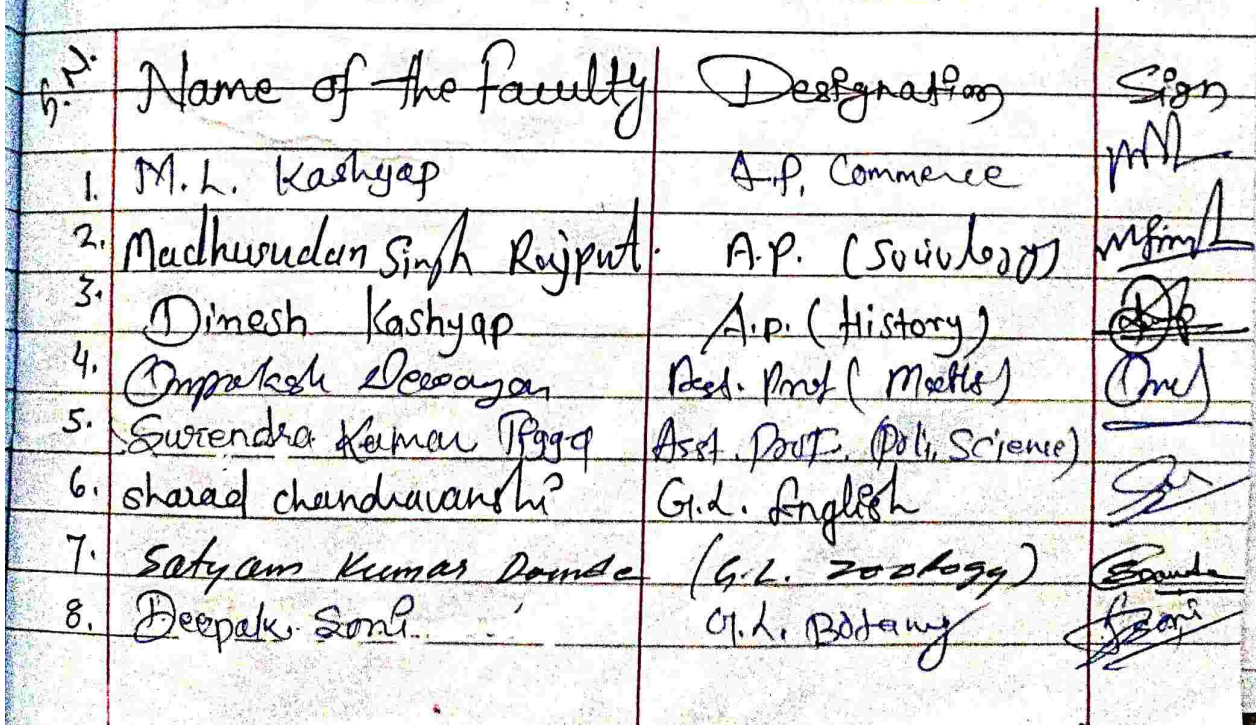 S.N. Name of the faculty Designation Sign
1. M.L. Kashyap A.P. Commerce
2. Madhusudan Singh Rajput. A.P. (Sociology)
3. Dinesh Kashyap A.P. (History)
4. Omprakash Dewangan Asst. Prof (Maths) Om
5. Surendra Kumar Tigga Asst. Prof. (Poli, Science)
6. Sharad chandravanshi G.L. English
7. Satyam Kumar Damde (G.L. Zoology)
8. Deepak Soni G.L. Botany Soni